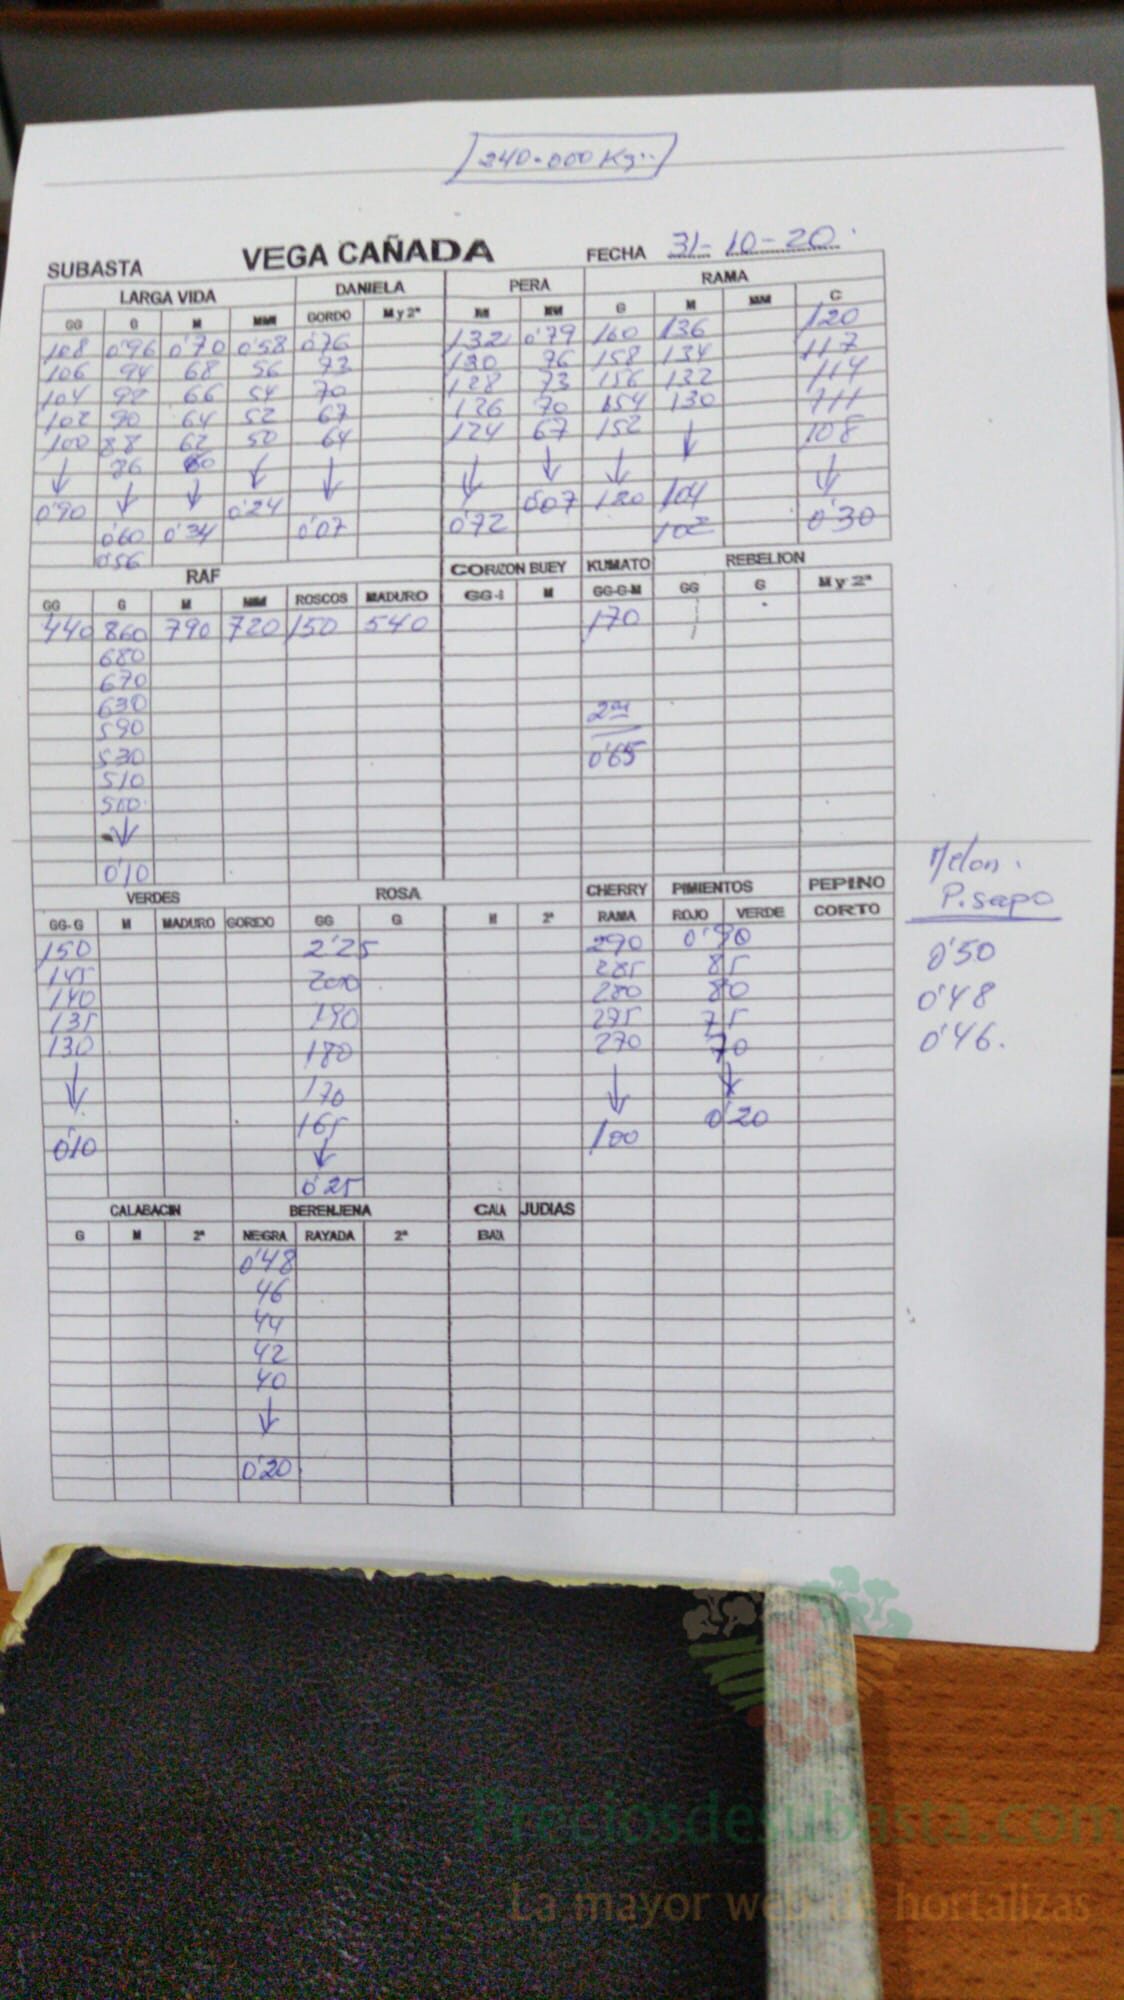 240.000 Kg..
SUBASTA VEGA CAÑADA FECHA 31-10-20.
LARGA VIDA DANIELA PERA RAMA
GG G M MM GORDO M y 2ª M MM G M MM C
108 0'96 0'70 0'58 0'76 132 0'79 160 136 120
106 94 68 56 73 130 76 158 134 117
104 92 66 54 70 128 73 156 132 114
102 90 64 52 67 126 70 154 130 111
100 88 62 50 64 124 67 152 ↓ 108
↓ 86 60 ↓ ↓ ↓ ↓ ↓ ↓
0'90 ↓ ↓ 0'24 0'07 120 104
0'60 0'34 0'07 0'72 102 0'30
0'56
RAF CORZON BUEY KUMATO REBELION
GG G M MM ROSCOS MADURO GG-I M GG-G-M GG G M y 2ª
440 860 790 720 150 540 170
680
670
630 2ª
590
530 0'65
510
500
↓
0'10
VERDES ROSA CHERRY PIMIENTOS PEPINO
GG-G M MADURO GORDO GG G M 2ª RAMA ROJO VERDE CORTO
150 2'25 290 0'90
145 200 285 85
140 280 80
135 190 275 75
130 180 270 70
↓ 170 ↓ ↓
165 0'20
0'10 ↓ 100
0'25
Melon.
P. sapo
0'50
0'48
0'46.
CALABACIN BERENJENA CALA JUDIAS
G M 2ª NEGRA RAYADA 2ª BAZA
0'48
46
44
42
40
↓
0'20
Preciosdesubasta.com
La mayor web de hortalizas